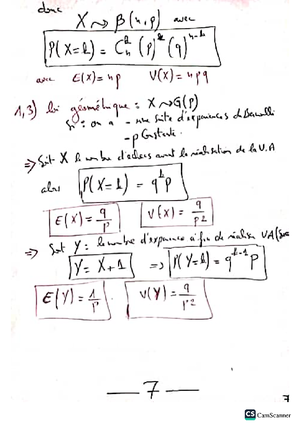 donc
X ⤳ β(n,p) avec
P(X=k) = C_n^k (p)^k (q)^{n-k}
avec E(X) = np V(X) = npq
1,3) loi géométrique : X⤳G(p)
Si : on a - une suite d'expériences de Bernoulli
- p constante.
=> Soit X le nombre d'échecs avant la réalisation de la V.A
alors P(X=k) = q^k p
E(X) = q/p V(X) = q/p²
=> Soit Y : le nombre d'expérience afin de réaliser VA
Y = X+1 => P(Y=k) = q^{k-1} p
E(Y) = 1/p V(Y) = q/p²
— 7 —
7
CS CamScanner